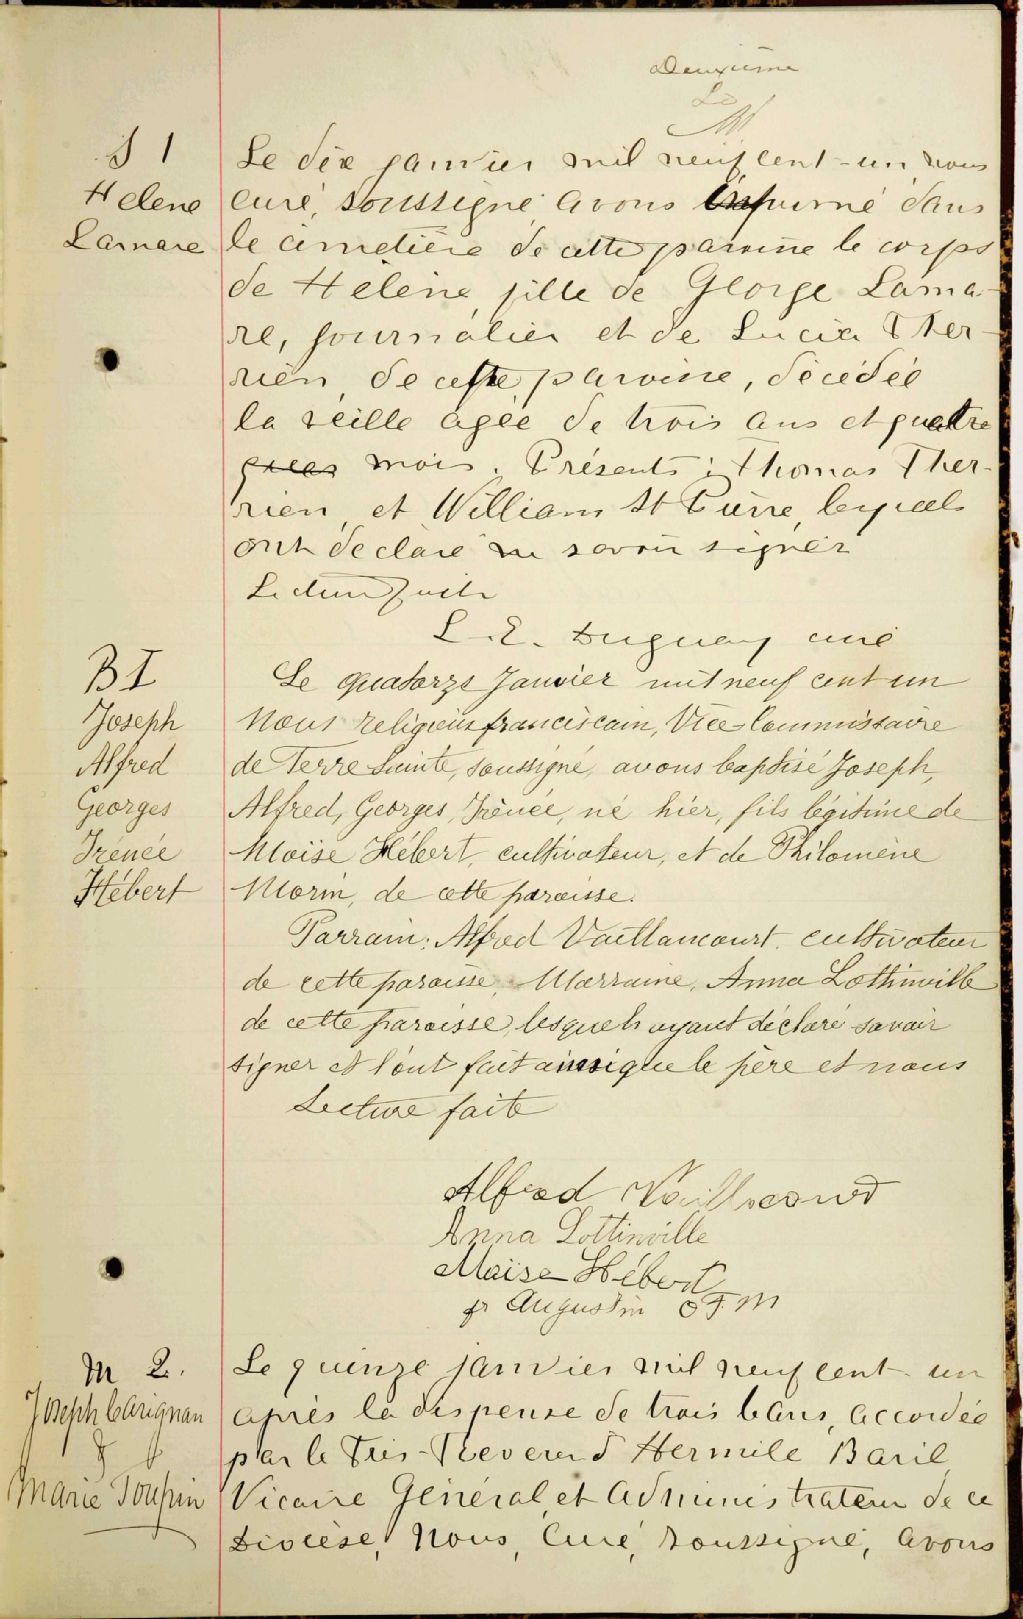 Deuxième
S 1
Helene
Lamare
Le dix janvier mil neuf cent-un, nous
curé, soussigné, avons inhumé dans
le cimetière de cette paroisse le corps
de Hélène, fille de George Lama-
re, journalier et de Lucia Ther-
rien, de cette paroisse, décédée
la veille agée de trois ans et quatre
mois. Présents: Thomas Ther-
rien, et William St Pierre, lesquels
ont déclaré ne savoir signer
Lecture faite
L. E. Duguay curé
B I
Joseph
Alfred
Georges
Irénée
Hébert
Le quatorze Janvier mil neuf cent un
Nous religieux franciscain, Vice-Commissaire
de Terre Sainte, soussigné, avons baptisé Joseph,
Alfred, Georges, Irénée, né hier, fils légitime de
Moïse Hébert, cultivateur, et de Philomène
Morin, de cette paroisse.
Parrain: Alfred Vaillancourt, cultivateur
de cette paroisse, Marraine, Anna Lottinville
de cette paroisse, lesquels ayant déclaré savoir
signer et l'ont fait ainsi que le père et nous
Lecture faite
Alfred Vaillancourt
Anna Lottinville
Moïse Hébert
fr Augustin OFM
M 2.
Joseph Carignan
&
Marie Toupin
Le quinze janvier mil neuf cent-un
après la dispense de trois bans, accordée
par le Très-Reverend Hermile Baril,
Vicaire Général et Administrateur de ce
Diocèse, Nous, Curé, soussigné, avons